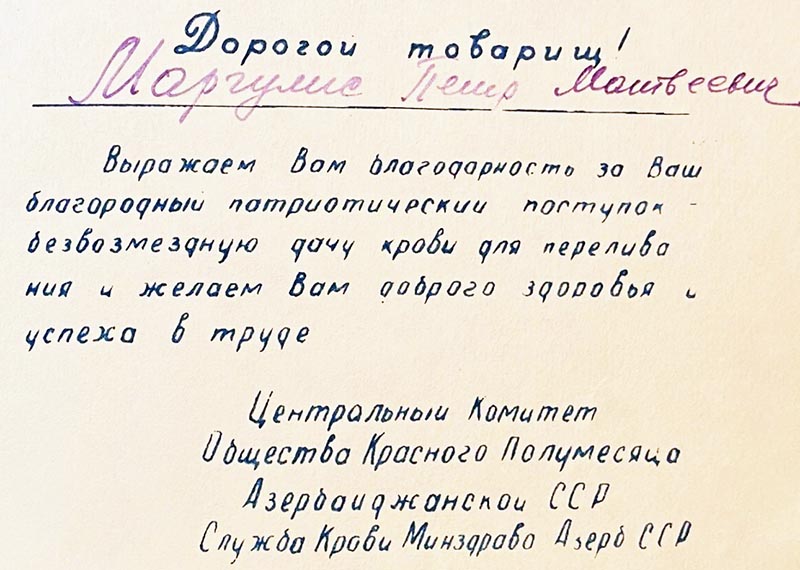 Дорогой товарищ!
Маргулис Петр Матвеевич
Выражаем Вам благодарность за Ваш
благородный патриотический поступок -
безвозмездную дачу крови для перелива
ния и желаем Вам доброго здоровья и
успеха в труде
Центральный Комитет
Общества Красного Полумесяца
Азербайджанской ССР
Служба Крови Минздрава Азерб ССР